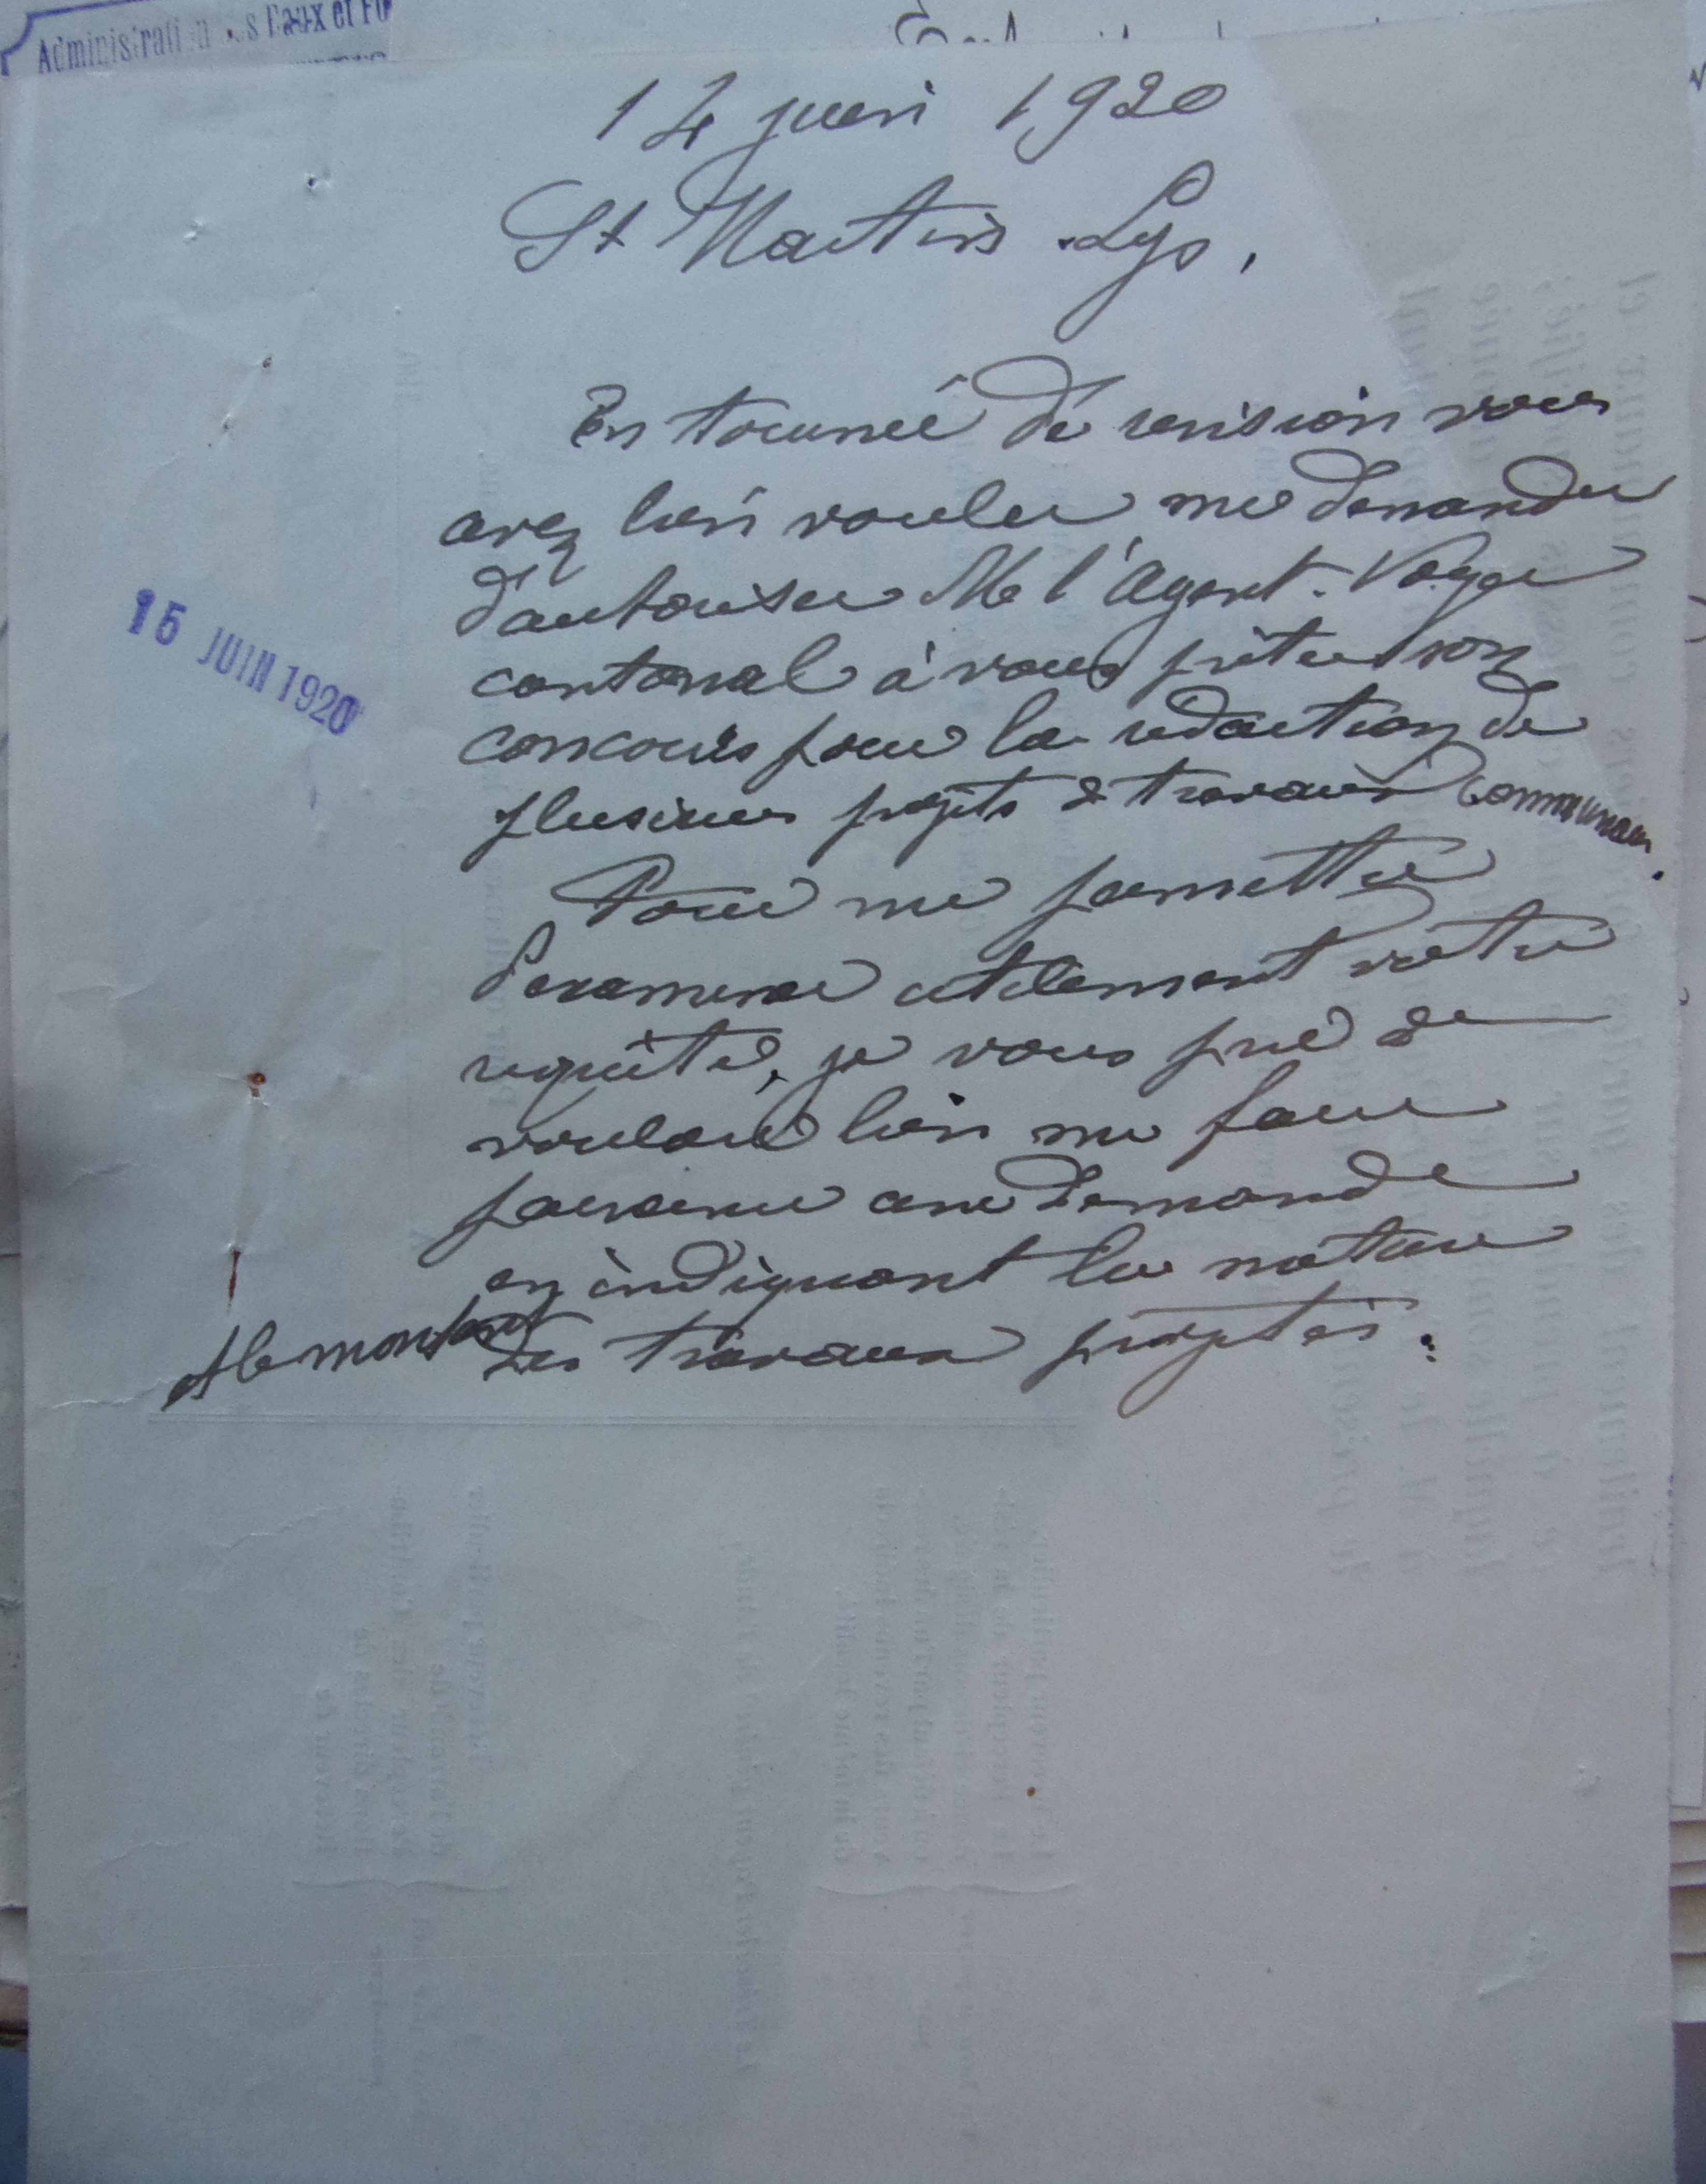 Administrati s Eaux et Fo
14 juin 1920
St Martin-Lys,
En tournée de révision vous
avez bien voulu me demander
d'autoriser M. l'Agent-Voyer
cantonal à vous prêter son
concours pour la rédaction de
plusieurs projets de travaux communaux.
Pour me permettre
d'examiner utilement votre
requête, je vous prie de
vouloir bien me faire
parvenir une demande
en indiquant la nature
et le montant des travaux projetés.
15 JUIN 1920